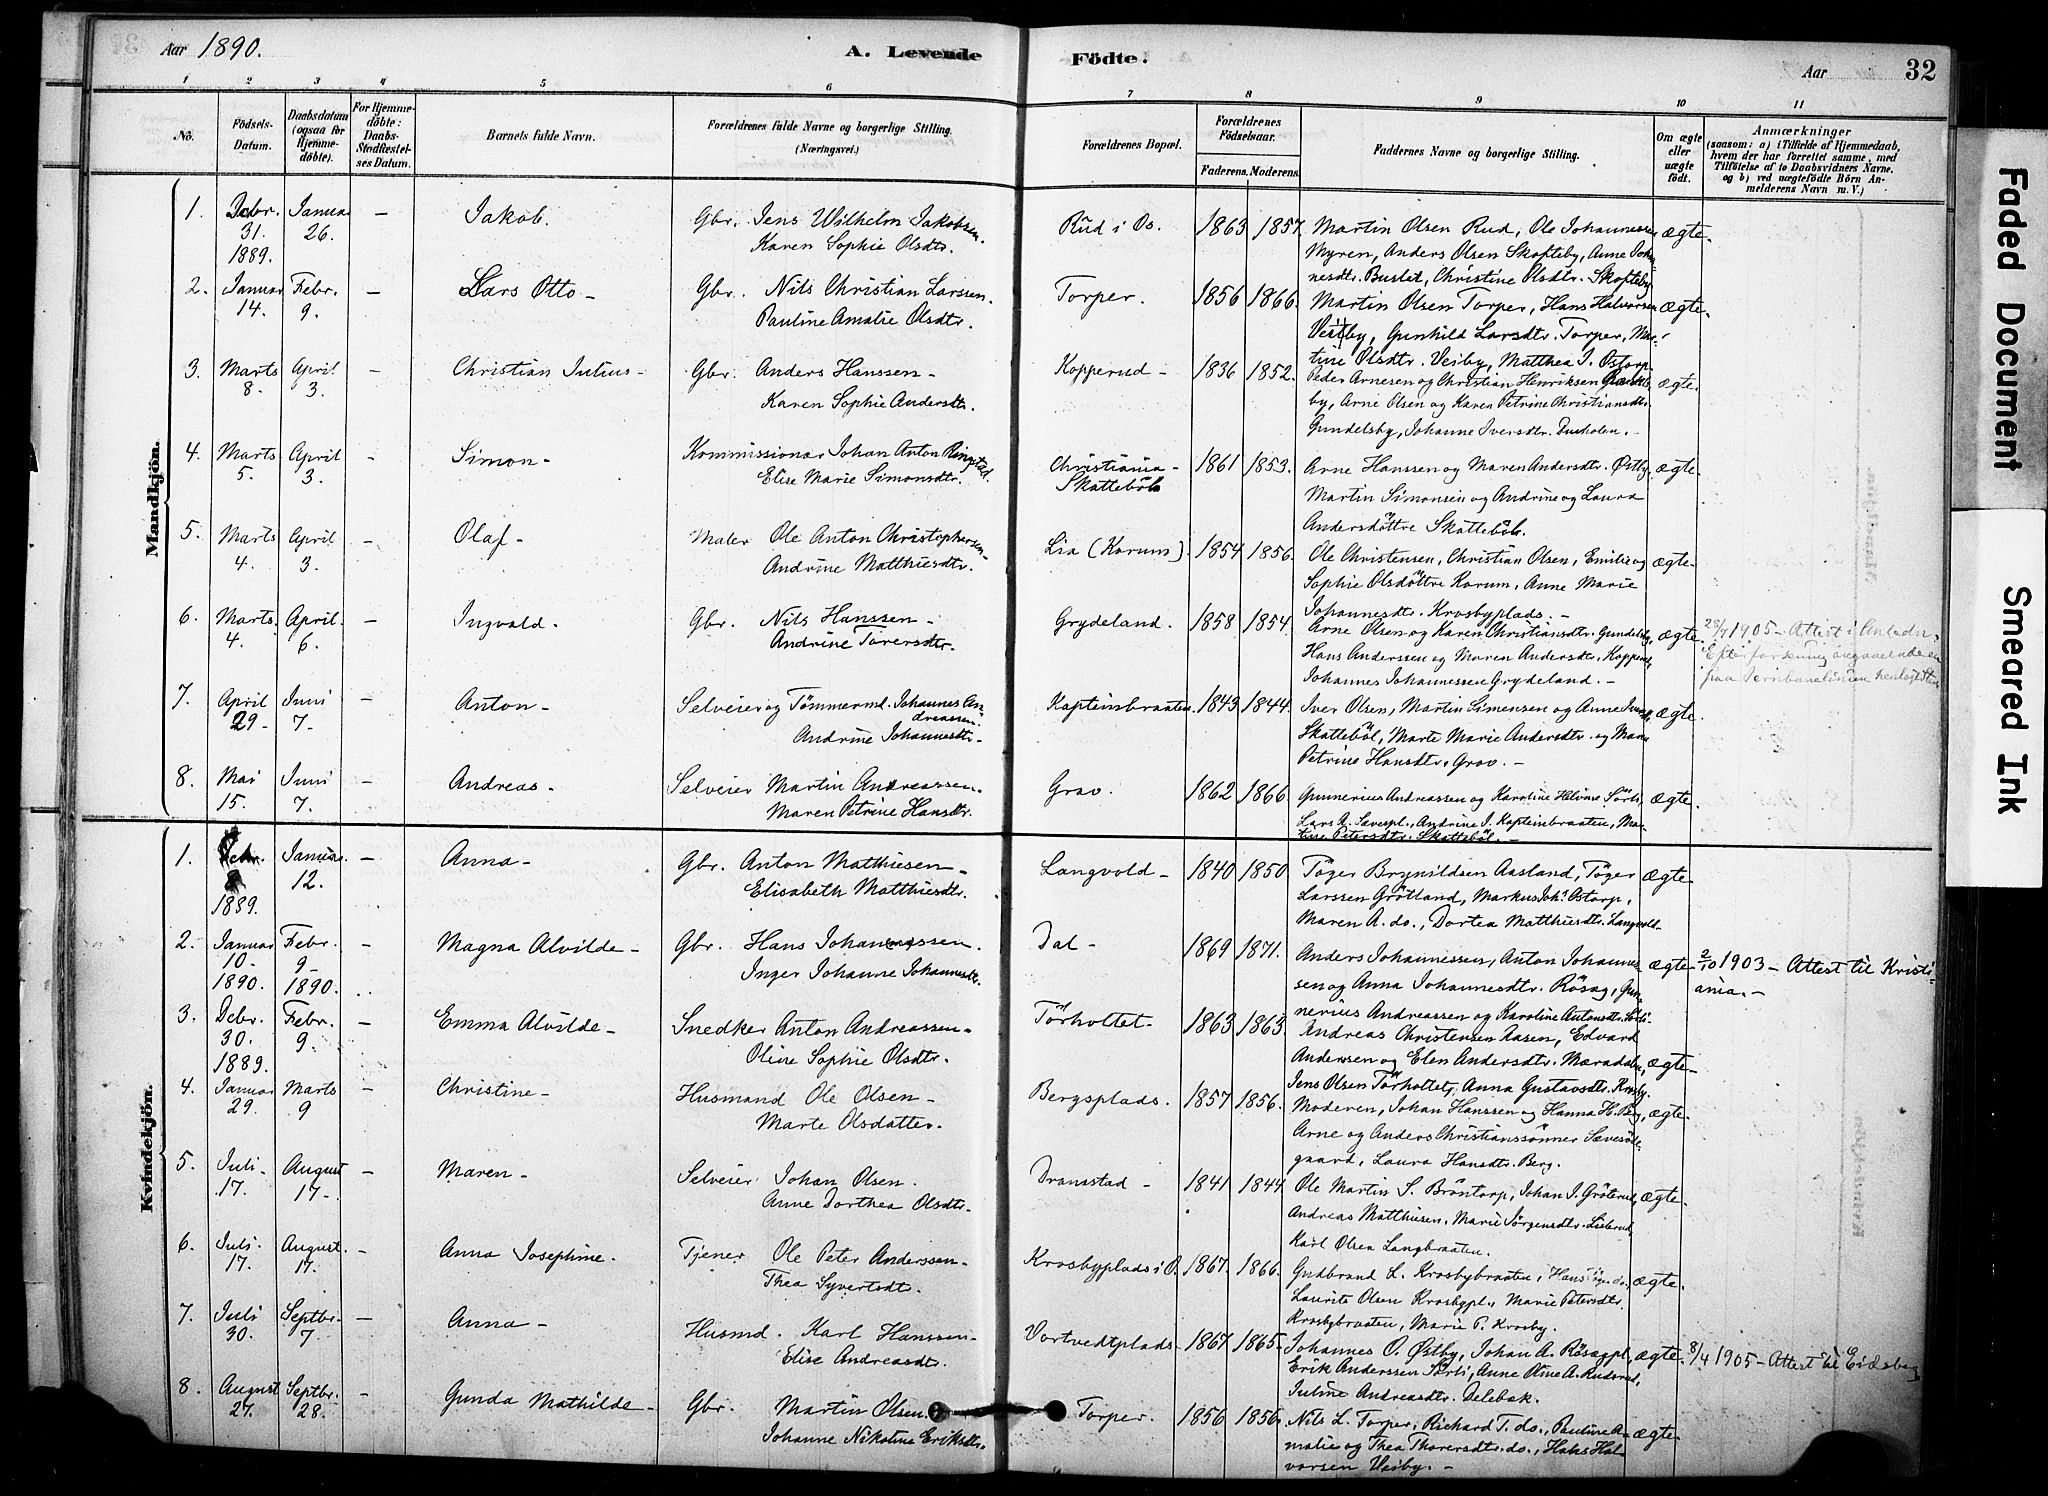 Aar 1890.
A. Levende Födte.
Aar
32
1 2 3 4 5 6 7 8 9 10 11
No.
Födsels-Datum.
Daabsdatum (ogsaa for Hjemmedöbte).
For Hjemmedöbte: Daabs-Stadfæstelses Datum.
Barnets fulde Navn.
Forældrenes fulde Navne og borgerlige Stilling.
(Næringsvei.)
Forældrenes Bopæl.
Forældrenes Födselsaar.
Faderens. Moderens.
Faddernes Navne og borgerlige Stilling.
Om ægte eller uægte födt.
Anmærkninger
(saasom: a) i Tilfælde af Hjemmedaab, hvem der har forrettet samme, med Tilföielse af to Daabsvidners Navne, og b) ved uægtefödte Börn Anmelderens Navn m. V.)
Mandkjön.
1. Decbr. 31. 1889. Januar 26. - Jakob. Gbr. Jens Wilhelm Jakobsen. Karen Sophie Olsdtr. Rud i Os. 1863 1857. Martin Olsen Rud, Ole Johannessen Myren, Anders Olsen Skofteby, Anne Johannesdtr. Bustet, Christine Olsdtr. Skofteby ægte.
2. Januar 14. Febr. 9. - Lars Otto - Gbr. Nils Christian Larssen. Pauline Amalie Olsdtr. Torper. 1856 1866. Martin Olsen Torper, Hans Halvorsen Veitby, Gunhild Larsdtr. Torper, Martine Olsdtr. Veiby, Matthea J. Ostorp. ægte.
3. Marts 8. April 3. - Christian Julius - Gbr. Anders Hanssen - Karen Sophie Andersdtr. Kopperud - 1836 1852. Peder Arnesen og Christian Henriksen by, Arne Olsen og Karen Petrine Christiansdtr. Gundelsby, Johanne Iversdtr. Dusholen. - ægte.
4. Marts 5. April 3. - Simon - Kommissionær Johan Anton Ringstad. Elise Marie Simonsdtr. Christiania - Skatteböl 1861 1853. Arne Hanssen og Maren Andersdtr. Östby, Martin Simonsen og Andrine og Laura Andersdöttre Skatteböl. ægte.
5. Marts 4. April 3. - Olaf - Maler Ole Anton Christophersen - Andrine Matthiesdtr. Lia (Korum). 1854 1856. Ole Christensen, Christian Olsen, Emilie og Sophie Olsdöttre Korum, Anne Marie Johannesdtr. Krosbyplads. - ægte.
6. Marts 4. April 6. - Ingvald. Gbr. Nils Hanssen - Andrine Torersdtr. Grydeland. 1858 1854. Arne Olsen og Karen Christiansdtr. Gundelsby, Hans Anderssen og Maren Andersdtr. Kopperud, Johannes Johannessen Grydeland. - ægte. 28/7 1905 - Attest i Anledn. Efterforskning angaaende en paa Jernbanelinien henlagt
7. April 29 - Juni 7. - Anton - Selveier og Tömmermd. Johannes Andreassen - Andrine Johannesdtr - Kapteinbraaten. 1843 1844. Iver Olsen, Martin Simensen og Anne Iversdtr. Skatteböl, Marte Marie Andersdtr. og Maren Petrine Hansdtr. Grav. - ægte.
8. Mai 15. Juni 7. - Andreas. Selveier Martin Andreassen - Maren Petrine Hansdtr. Grav. 1862 1866. Gunnerius Andreassen og Karoline Helvine Sörli, Lars A. Sævespl., Andrine J. Kapteinbraaten, Martine Petersdtr. Skatteböl. - ægte.
Kvindekjön.
1. Decbr. 1889. Januar. 12. - Anna - Gbr. Anton Matthiesen - Elisabeth Matthiesdtr. Langvold - 1840 1850 Töger Brynildsen Aasland, Töger Larssen Grötland, Markus Joh.s Ostorp, Maren A. do., Dortea Matthiesdtr. Langvold - ægte
2. Januar 10 - 1890. Febr. 9 - 1890. - Magna Alvilde - Gbr. Hans Johannessen. Inger Johanne Johannesdtr. Dal - 1869 1871. Anders Johannessen, Anton Johannessen og Anna Johannesdtr. Rösæg, Gunnerius Andreassen og Karoline Antonsdtr. Sörli - ægte 2/10 1903 - Attest til Kristiania. -
3. Debr. 30. 1889. Febr. 9. - Emma Alvilde - Snedker Anton Andreassen - Oline Sophie Olsdtr. Törhottet - 1863 1863 Andreas Christensen Aasen, Edvard Anderssen og Elen Andersdtr. Mæradalen, Jens Olsen Törhottet, Anna Gustavsdtr. Krosby. ægte -
4. Januar 29. Marts 9 - Christine - Husmand Ole Olsen - Marte Olsdatter. Bergsplads. 1857 1856. Moderen, Johan Hanssen og Hanna H. Berg, Arne og Anders Christianssönner Sævesödegaard, Laura Hansdtr. Berg. ægte.
5. Juli 17. August 17 - - Maren - Selveier Johan Olsen. Anne Dorthea Olsdtr. Dramstad - 1841 1844 Ole Martin S. Bröntorp, Johan J. Gröterud, Andreas Matthiesen, Marie Jörgensdtr. Lisbrud, Karl Olsen Langbraaten. ægte -
6. Juli 17. August 17. - Anna Josephine. Tjener Ole Peter Anderssen - Thea Syvertsdtr. Krosbyplads i O. 1867. 1866. Gudbrand L. Krosbybraaten, Hans do., Laurits Olsen Krosbypl., Marie Petersdtr. Krosbybraaten, Marie P. Krosby. ægte.
7. Juli 30. Septbr. 7 - Anna - Husmd. Karl Hanssen - Elise Andreasdtr. Vortvedtplads. 1867 1865 - Johannes O. Østby, Johan A. Rösægpl., Erik Anderssen Sörli, Anne Oline A. Rudsrud, Juline Andreasdtr. Delebæk. ægte. 8/4 1905 - Attest til Eidsberg
8. August 27. Septbr. 28. - Gunda Mathilde - Gbr. Martin Olsen Johanne Nikoline Eriksdtr. Torper. 1856 1856. Nils L. Torper, Richard T. do., Pauline Amalie og Thea Thoversdtr. do., Hans Halvorsen Veiby. - ægte
Faded Document
Smeared Ink